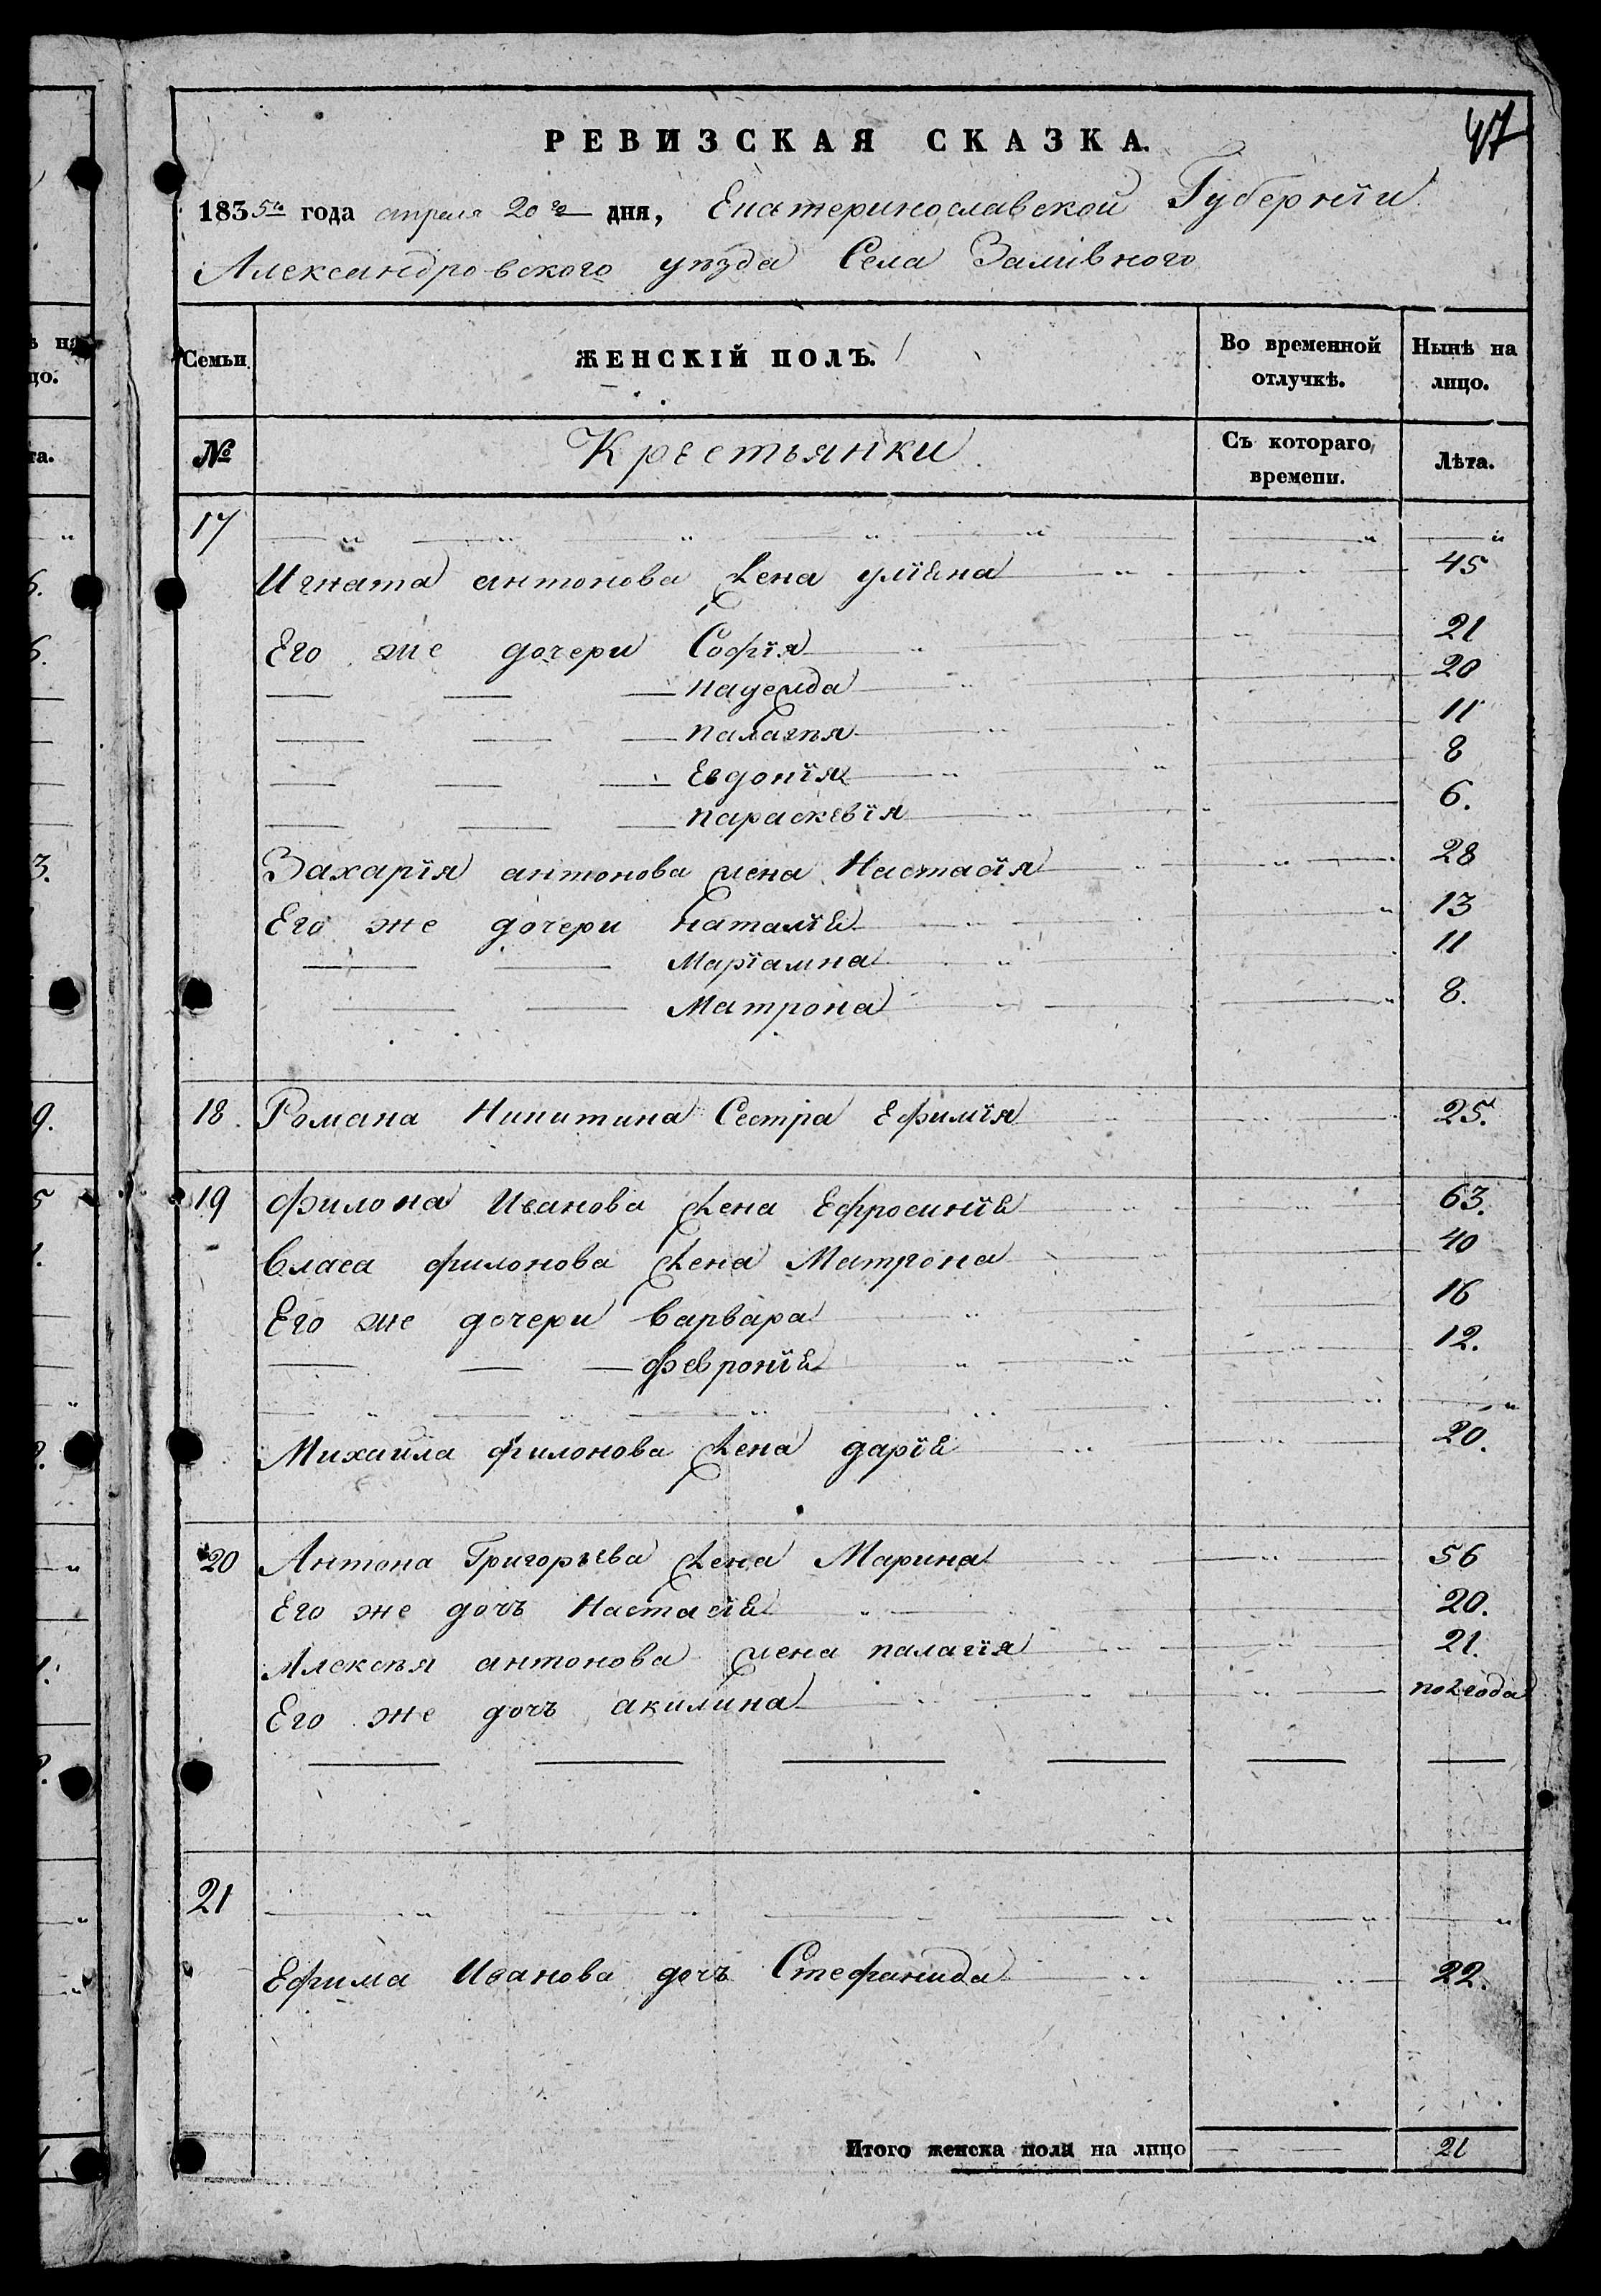 47
РЕВИЗСКАЯ СКАЗКА.
1835го года апреля 20го дня, Екатеринославской Губернїи
Александровского уезда Села Заливного
Семьи ЖЕНСКІЙ ПОЛЪ. Во временной отлучкѣ. Нынѣ на лицо.
№ Крестьянки Съ котораго времени. Лѣта.
17
Игната антонова жена улїяна 45
Его же дочери Софїя 21
надежда 20
палагея 11
Евдокїя 8
параскевїя 6.
Захарїя антонова жена Настасїя 28
Его же дочери наталїя 13
Марїамна 11
Матрона 8.
18. Романа Никитина Сестра Ефимїя 25.
19 Филона Иванова жена Ефросинїя 63.
Власа филонова жена Матрона 40
Его же дочери варвара 16
февронїя 12.
Михайла филонова жена дарїя 20.
20 Антона Григорьева жена Марина 56
Его же дочь Настасїя 20.
Алексея антонова жена палагїя 21.
Его же дочь акилина пол года
21
Ефима Иванова дочь Стефанида 22.
Итого женска пола на лицо 21